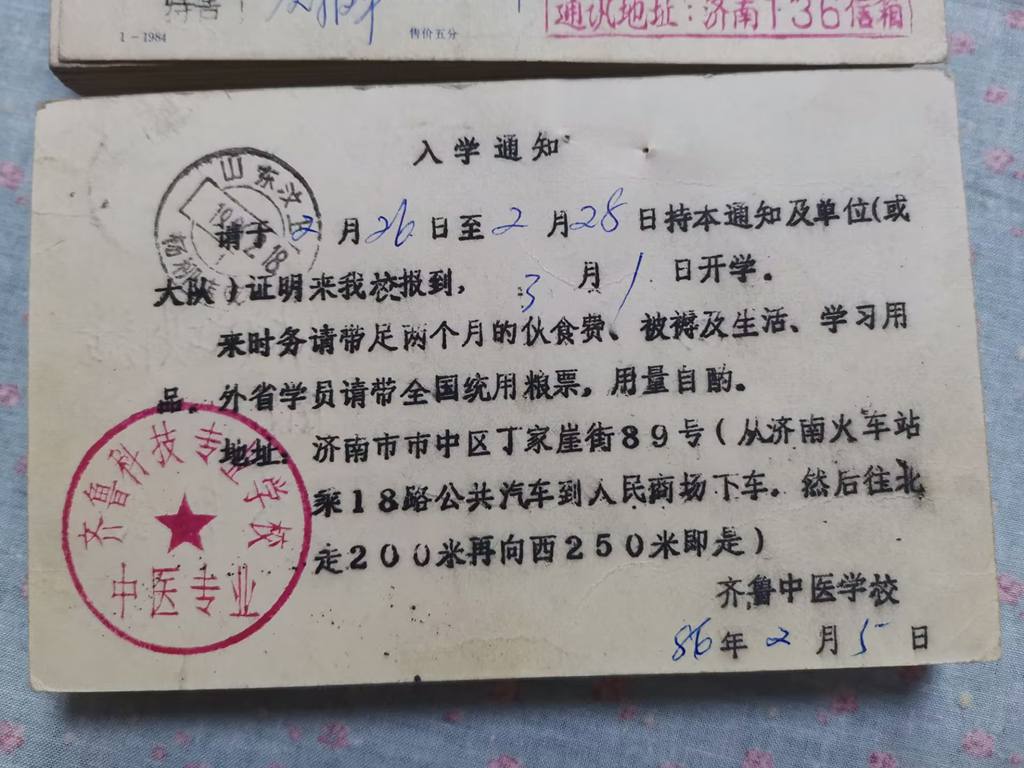 1－1984
售价五分
通讯地址：济南136信箱
入学通知
请于2月26日至2月28日持本通知及单位(或
大队)证明来我校报到，3月1日开学。
来时务请带足两个月的伙食费、被褥及生活、学习用
品。外省学员请带全国统用粮票，用量自酌。
地址：济南市市中区丁家崖街89号(从济南火车站
乘18路公共汽车到人民商场下车。然后往北
走200米再向西250米即是)
齐鲁中医学校
86年2月5日
山东汶上
2.18
齐鲁科技专业学校
中医专业